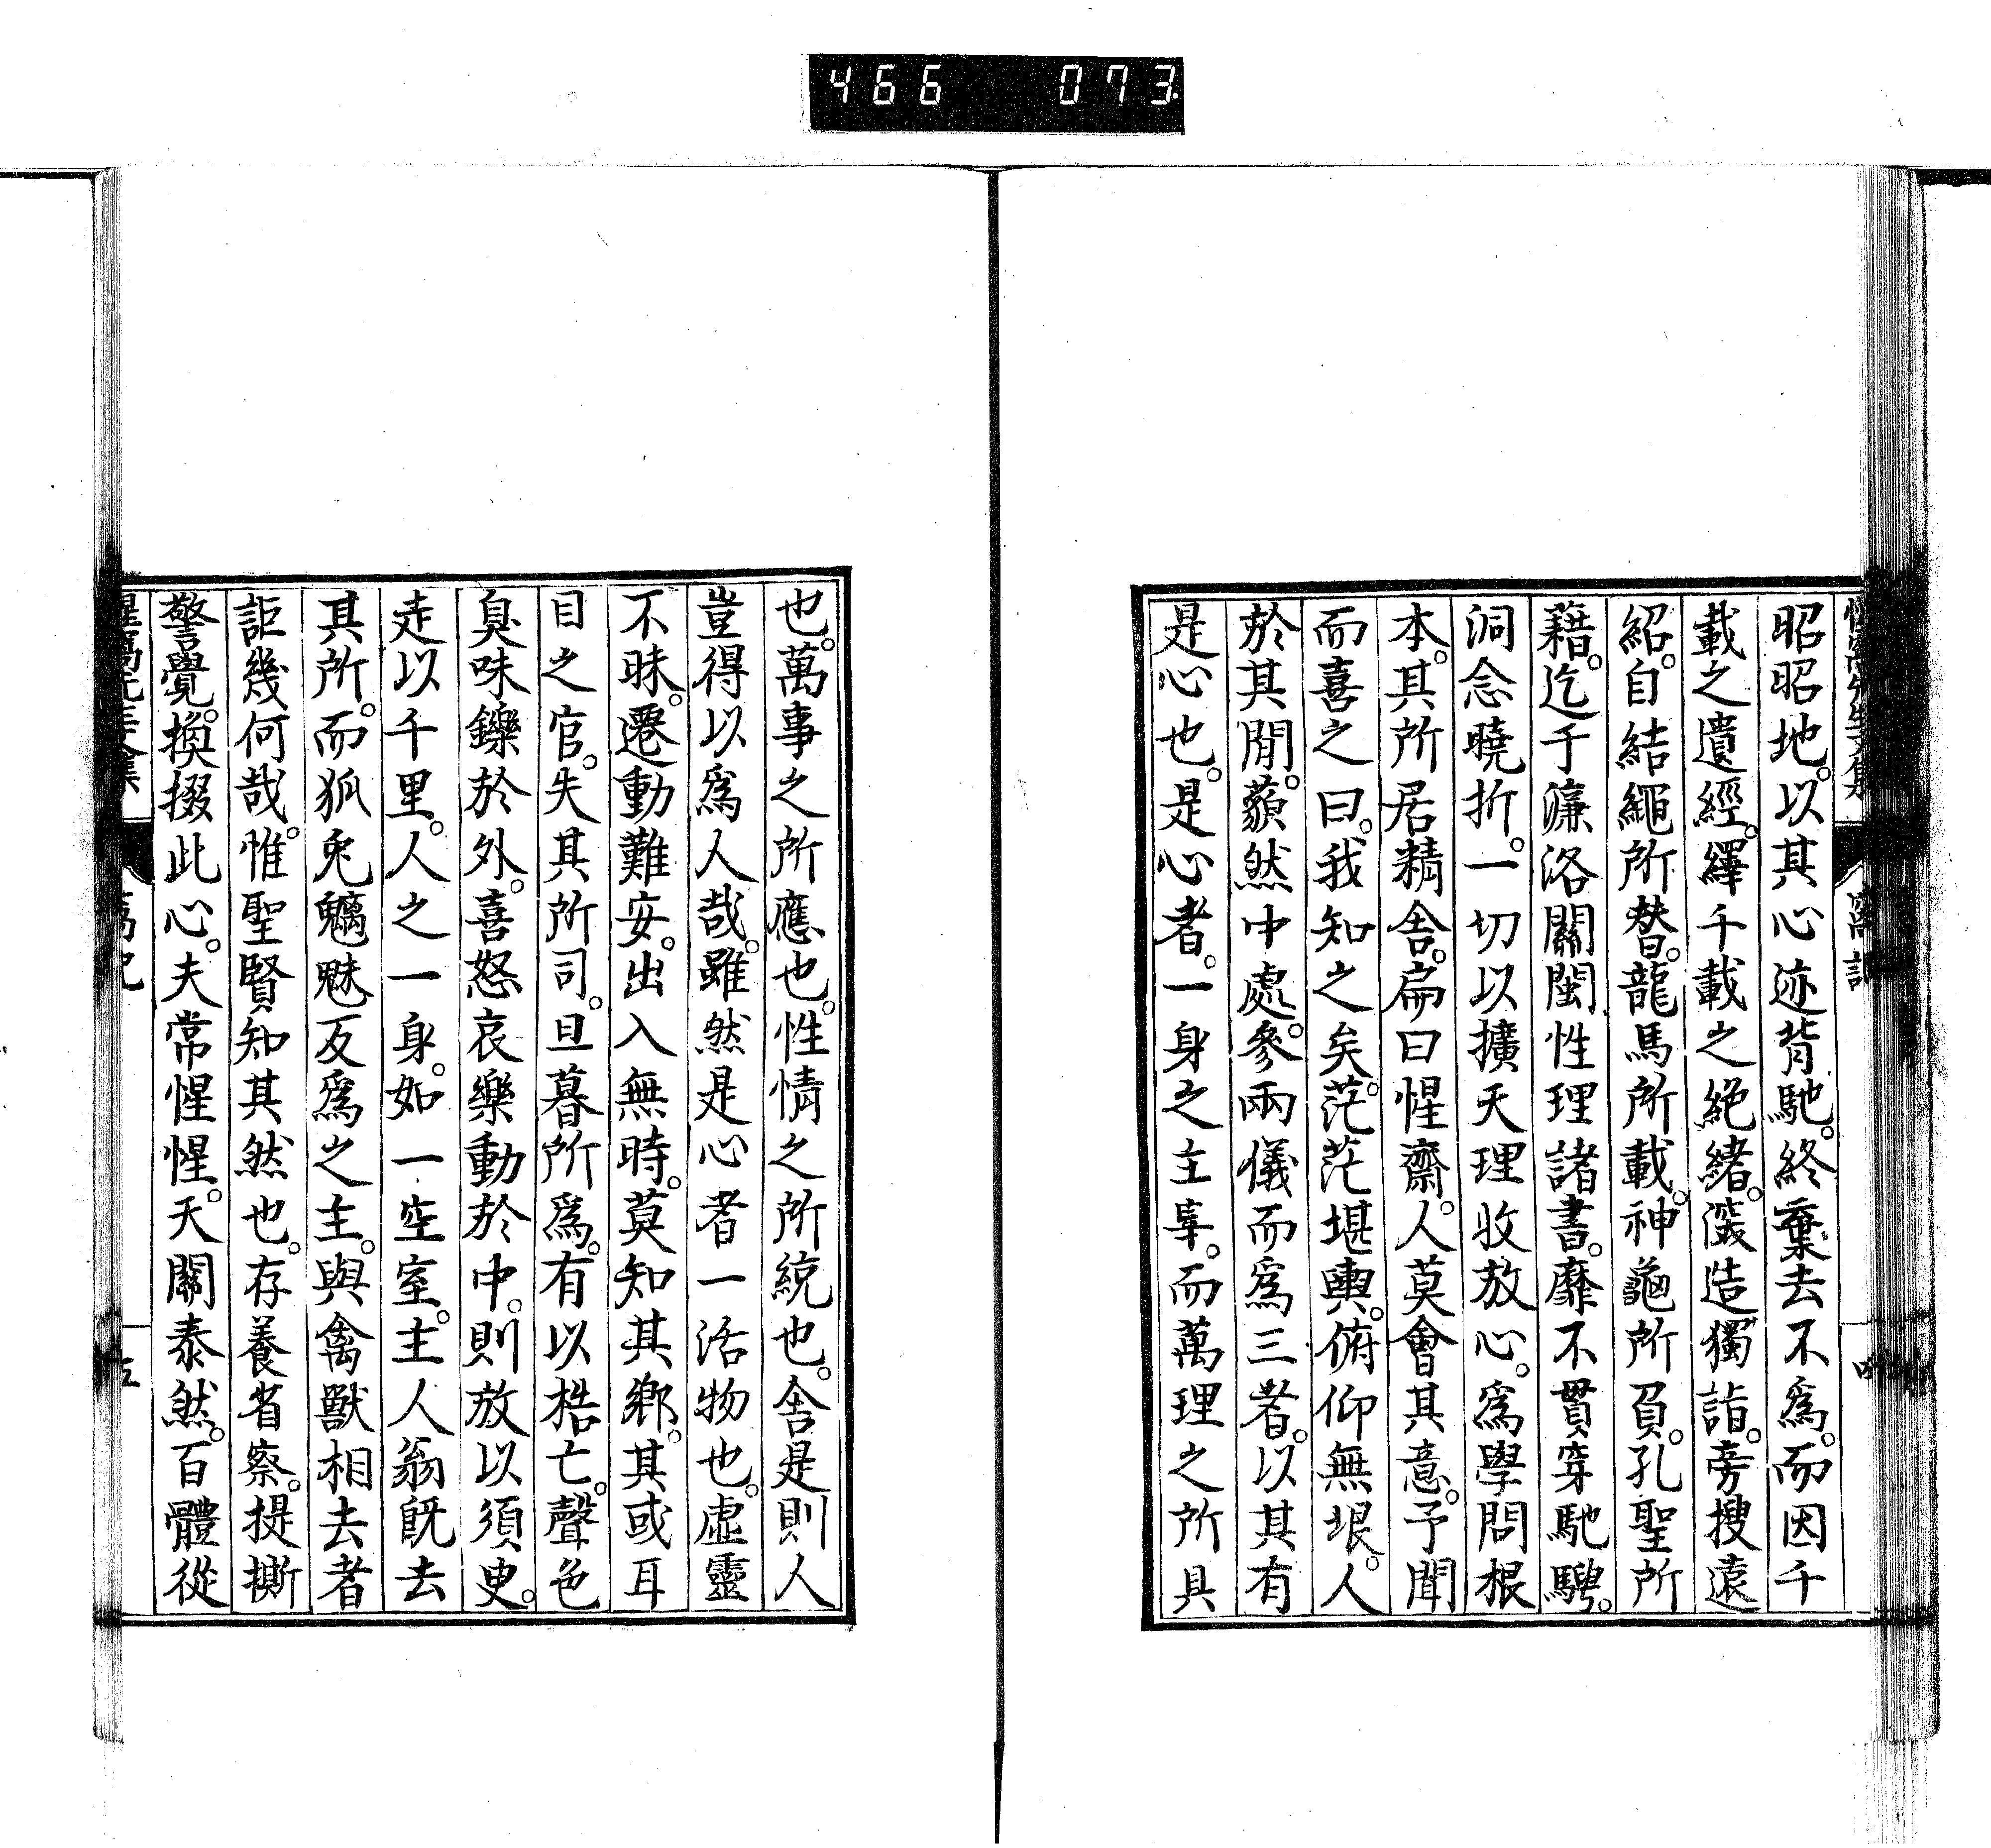 466 073
昭昭地。以其心迹背馳。終棄去不爲。而因千
載之遺經。繹千載之絶緖。深造獨詣。旁搜遠
紹。自結繩所替。龍馬所載。神龜所負。孔聖所
籍。迄于濂洛關閩性理諸書。靡不貫穿馳騁。
洞念曉折。一切以擴天理收放心。爲學問根
本。其所居精舍。扁曰惺齋。人莫會其意。予聞
而喜之曰。我知之矣。茫茫堪輿。俯仰無垠。人
於其閒。藐然中處。參兩儀而爲三者。以其有
是心也。是心者。一身之主宰。而萬理之所具
也。萬事之所應也。性情之所統也。舍是則人
豈得以爲人哉。雖然是心者一活物也。虛靈
不昧。遷動難安。出入無時。莫知其鄕。其或耳
目之官。失其所司。旦暮所爲。有以梏亡。聲色
臭味鑠於外。喜怒哀樂動於中。則放以須臾。
走以千里。人之一身。如一空室。主人翁旣去
其所。而狐兎魑魅反爲之主。與禽獸相去者
詎幾何哉。惟聖賢知其然也。存養省察。提撕
警覺。換掇此心。夫常惺惺。天關泰然。百體從